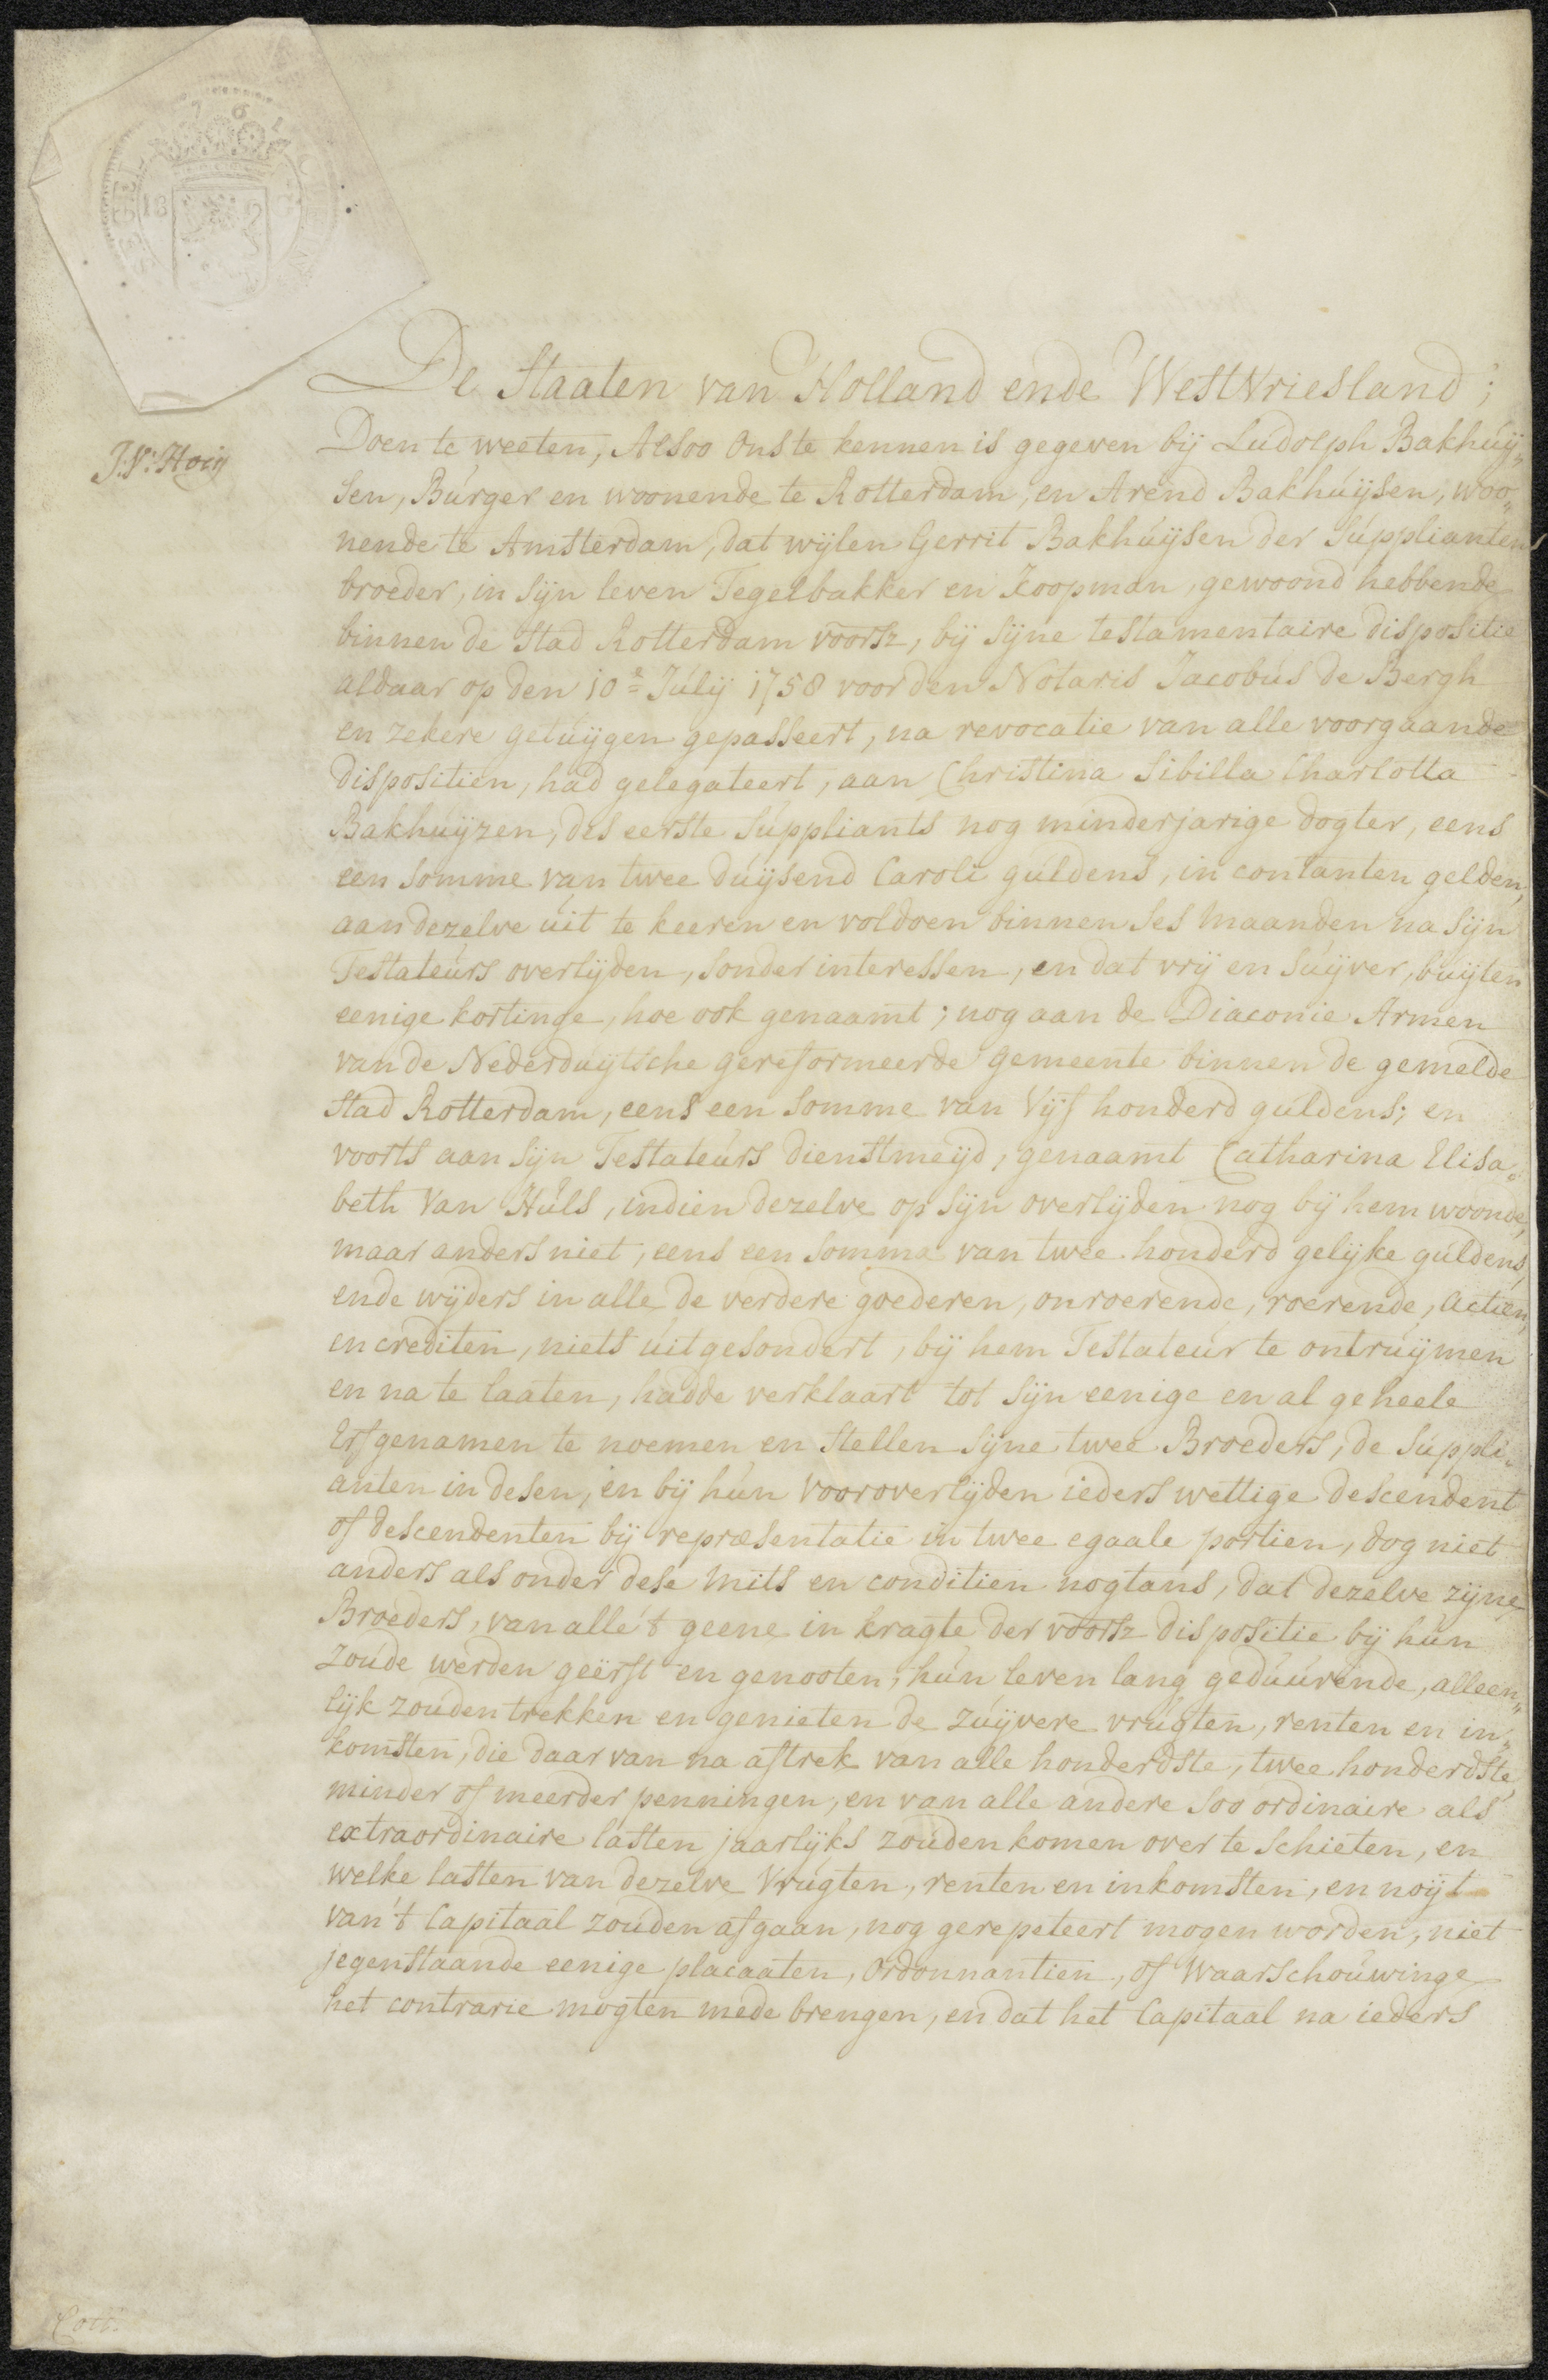 1761
18
J: V: Hoiy
De Staaten van Holland ende WestVriesland;
Doen te weeten, Alsoo Ons te kennen is gegeven bij Ludolph Bakhuij„
sen, Burger en woonende te Rotterdam, en Arend Bakhuijsen, woo„
nende te Amsterdam, dat wijlen Gerrit Bakhuijsen der Supplianten
broeder, in sijn leven Tegelbakker en Koopman, gewoond hebbende
binnen de Stad Rotterdam voorsz, bij sijne testamentaire dispositie
aldaar op den 10e Julij 1758 voor den Notaris Jacobus de Bergh
en zekere getuijgen gepasseert, na revocatie van alle voorgaande
dispositien, had gelegateert, aan Christina Sibilla Charlotta
Bakhuijzen, des eerste Suppliants nog minderjarige dogter, eens
een somme van twee duijsend Caroli guldens, in contanten gelden,
aan dezelve uit te keeren en voldoen binnen ses maanden na sijn
Testateurs overlijden, sonder interessen, en dat vrij en suijver, buijten
eenige kortinge, hoe ook genaamt; nog aan de Diaconie Armen
van de Nederduijtsche gereformeerde gemeente binnen de gemelde
Stad Rotterdam, eens een somme van Vijf honderd guldens; en
voorts aan sijn Testateurs dienstmeijd, genaamt Catharina Elisa„
beth Van Huls, indien dezelve op sijn overlijden nog bij hem woonde,
maar anders niet, eens een somma van twee honderd gelijke guldens,
ende wijders in alle de verdere goederen, onroerende, roerende, actien,
en crediten, niets uitgesondert, bij hem Testateur te ontruijmen
en na te laaten, hadde verklaart tot sijn eenige en al geheele
Erfgenamen te noemen en stellen sijne twee Broeders, de Suppli„
anten in desen, en bij hun vooroverlijden ieders wettige descendent
of descendenten bij repræsentatie in twee egaale portien, dog niet
anders als onder dese mits en conditien nogtans, dat dezelve zijne
Broeders, van alle 't geene in kragte der voorsz dispositie bij hun
zoude werden geërft en genooten, hun leven lang geduurende, alleen„
lijk zouden trekken en genieten de zuijvere vrugten, renten en in„
komsten, die daar van na aftrek van alle honderdste, twee honderdste,
minder of meerder penningen, en van alle andere soo ordinaire als
extraordinaire lasten jaarlijks zouden komen over te schieten, en
welke lasten van dezelve Vrugten, renten en inkomsten, en noijt
van 't Capitaal zouden afgaan, nog gerepeteert mogen worden, niet
jegenstaande eenige placaaten, Ordonnantien, of Waarschouwinge
het contrarie mogten mede brengen, en dat het Capitaal na ieders